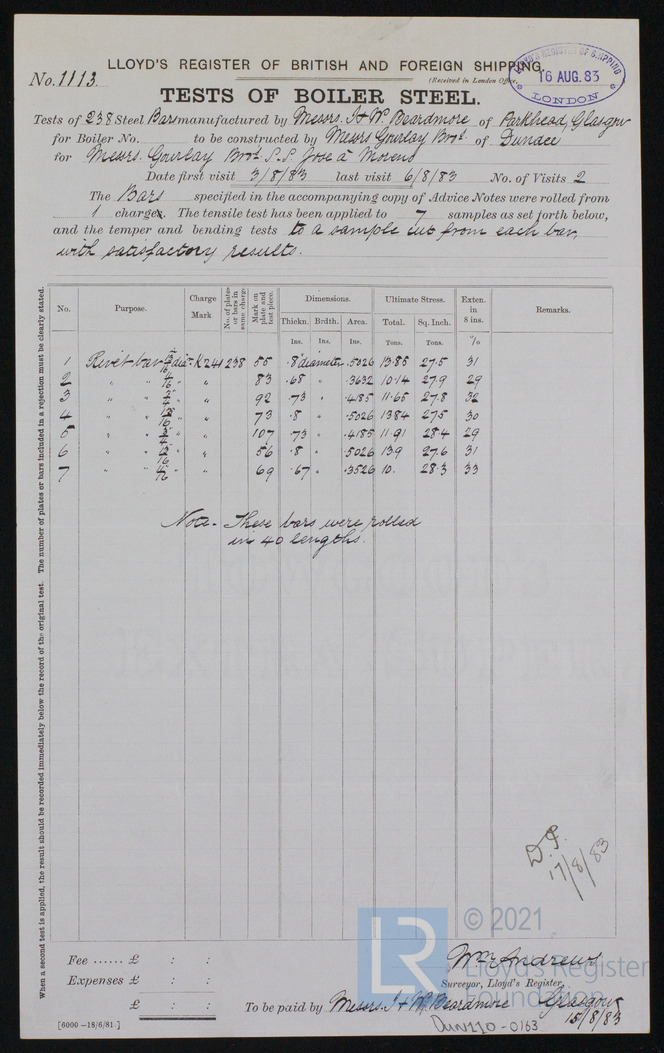 LLOYD'S REGISTER OF BRITISH AND FOREIGN SHIPPING.
No. 1113
(Received in London Office,
LLOYD'S REGISTER OF SHIPPING
16 AUG. 83
LONDON
TESTS OF BOILER STEEL.
Tests of 238 Steel Bars manufactured by Messrs. J & Wm Beardmore of Parkhead, Glasgow
for Boiler No. to be constructed by Messrs Gourlay Bros. of Dundee
for Messrs. Gourlay Bros. S.S. Jose a Moreno
Date first visit 3/8/83 last visit 6/8/83 No. of Visits 2
The Bars specified in the accompanying copy of Advice Notes were rolled from
1 charges. The tensile test has been applied to 7 samples as set forth below,
and the temper and bending tests to a sample cut from each bar,
with satisfactory results.
No. Purpose. Charge Mark No. of plates or bars in same charge. Mark on plate and test piece. Dimensions. Ultimate Stress. Exten. in 8 ins. Remarks.
Thickn. Brdth. Area. Total. Sq. Inch.
Ins. Ins. Ins. Tons. Tons. %
1 Rivet bar dia. K241 238 55 .8 diameter .5026 13.85 27.5 31
2 " " " " 83 .68 " .3632 10.14 27.9 29
3 " " " " 92 .73 " .4185 11.65 27.8 32
4 " " 13/16 " " 73 .8 " .5026 13.84 27.5 30
5 " " " " 107 .73 " .4185 11.91 28.4 29
6 " " 13/16 " " 56 .8 " .5026 13.9 27.6 31
7 " " " " 69 .67 " .3526 10. 28.3 33
Note - These bars were rolled
in 40 lengths.
When a second test is applied, the result should be recorded immediately below the record of the original test. The number of plates or bars included in a rejection must be clearly stated.
17/8/83
Fee ...... £ : :
Expenses £ : :
£ : :
Wm Andrews
Surveyor, Lloyd's Register,
To be paid by Messrs. J & Wm Beardmore Glasgow
15/8/83
[6000 –18/6/81.]
DUN110-0163
LR © 2021
Lloyd's Register
Foundation